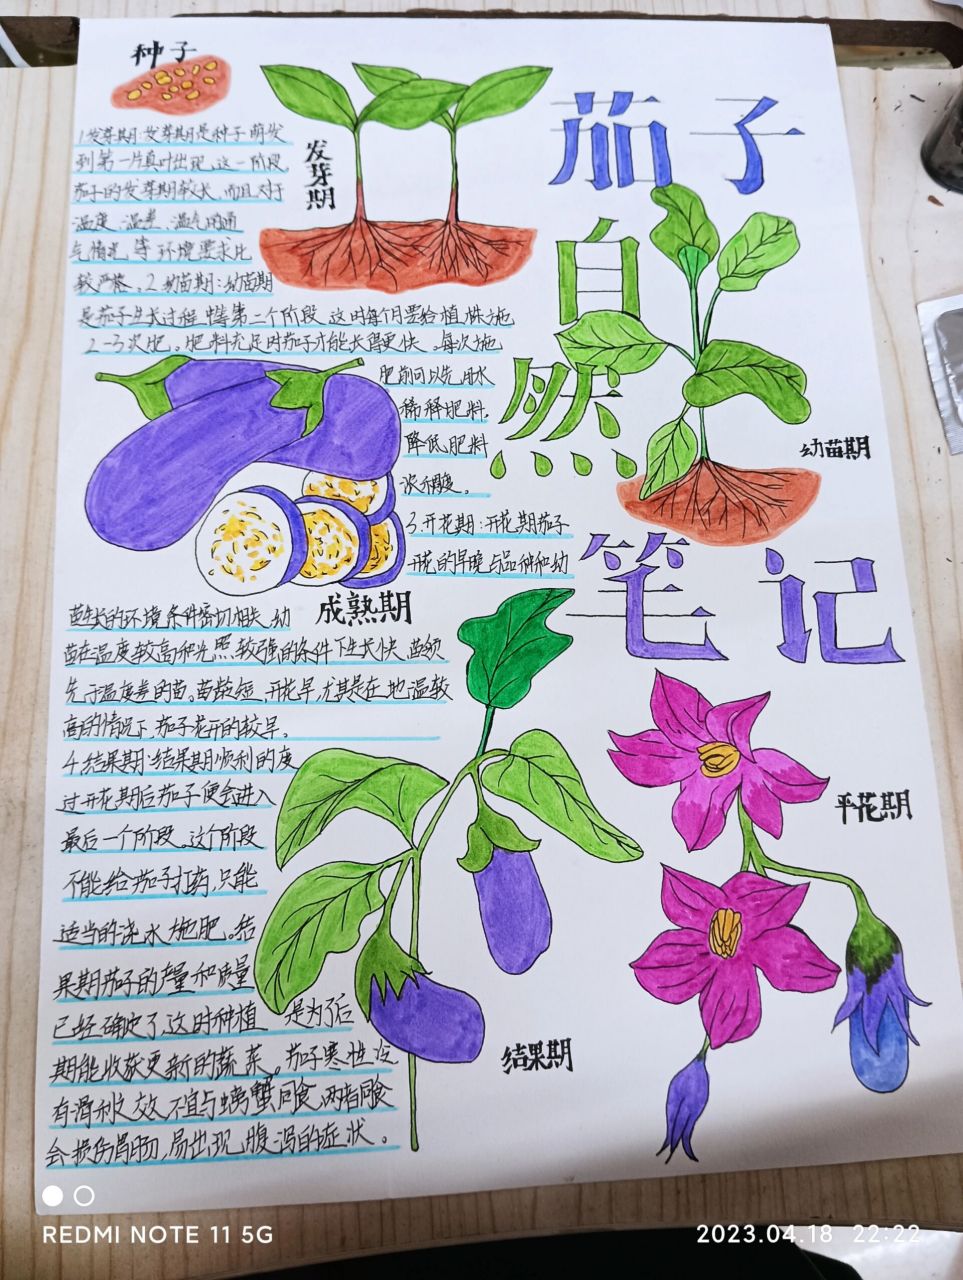 种子
发芽期
茄子
自然
笔记
1.发芽期:发芽期是种子萌发
到第一片真叶出现,这一阶段,
茄子的发芽期较长,而且对于
温度、温差、湿气的通
气情况,等环境要求比
较严格。2.幼苗期:幼苗期
是茄子生长过程中等第二个阶段,这时每个月要给植株施
2-3次肥。肥料充足时茄子才能长得更快。每次施
肥前可以先用水
稀释肥料,
降低肥料
浓度。
幼苗期
3.开花期:开花期茄子
开花的早晚与品种和幼
成熟期
苗生长的环境条件密切相关,幼
苗在温度较高和光照较强的条件下生长快,苗
温度差的苗。苗龄短,开花早,尤其是在地温较
高的情况下,茄子花开的较早。
4.结果期:结果期顺利的度
过开花期后茄子便会进入
最后一个阶段。这个阶段
不能给茄子打药,只能
适当的浇水施肥。结
果期茄子的产量和质量
已经确定了这时种植 是为了后
期能收获更新的蔬菜。茄子寒性
有滑利之效,不宜与螃蟹同食,两者同食
会损伤胃肠,易出现腹泻的症状。
开花期
结果期
REDMI NOTE 11 5G
2023.04.18 22:22